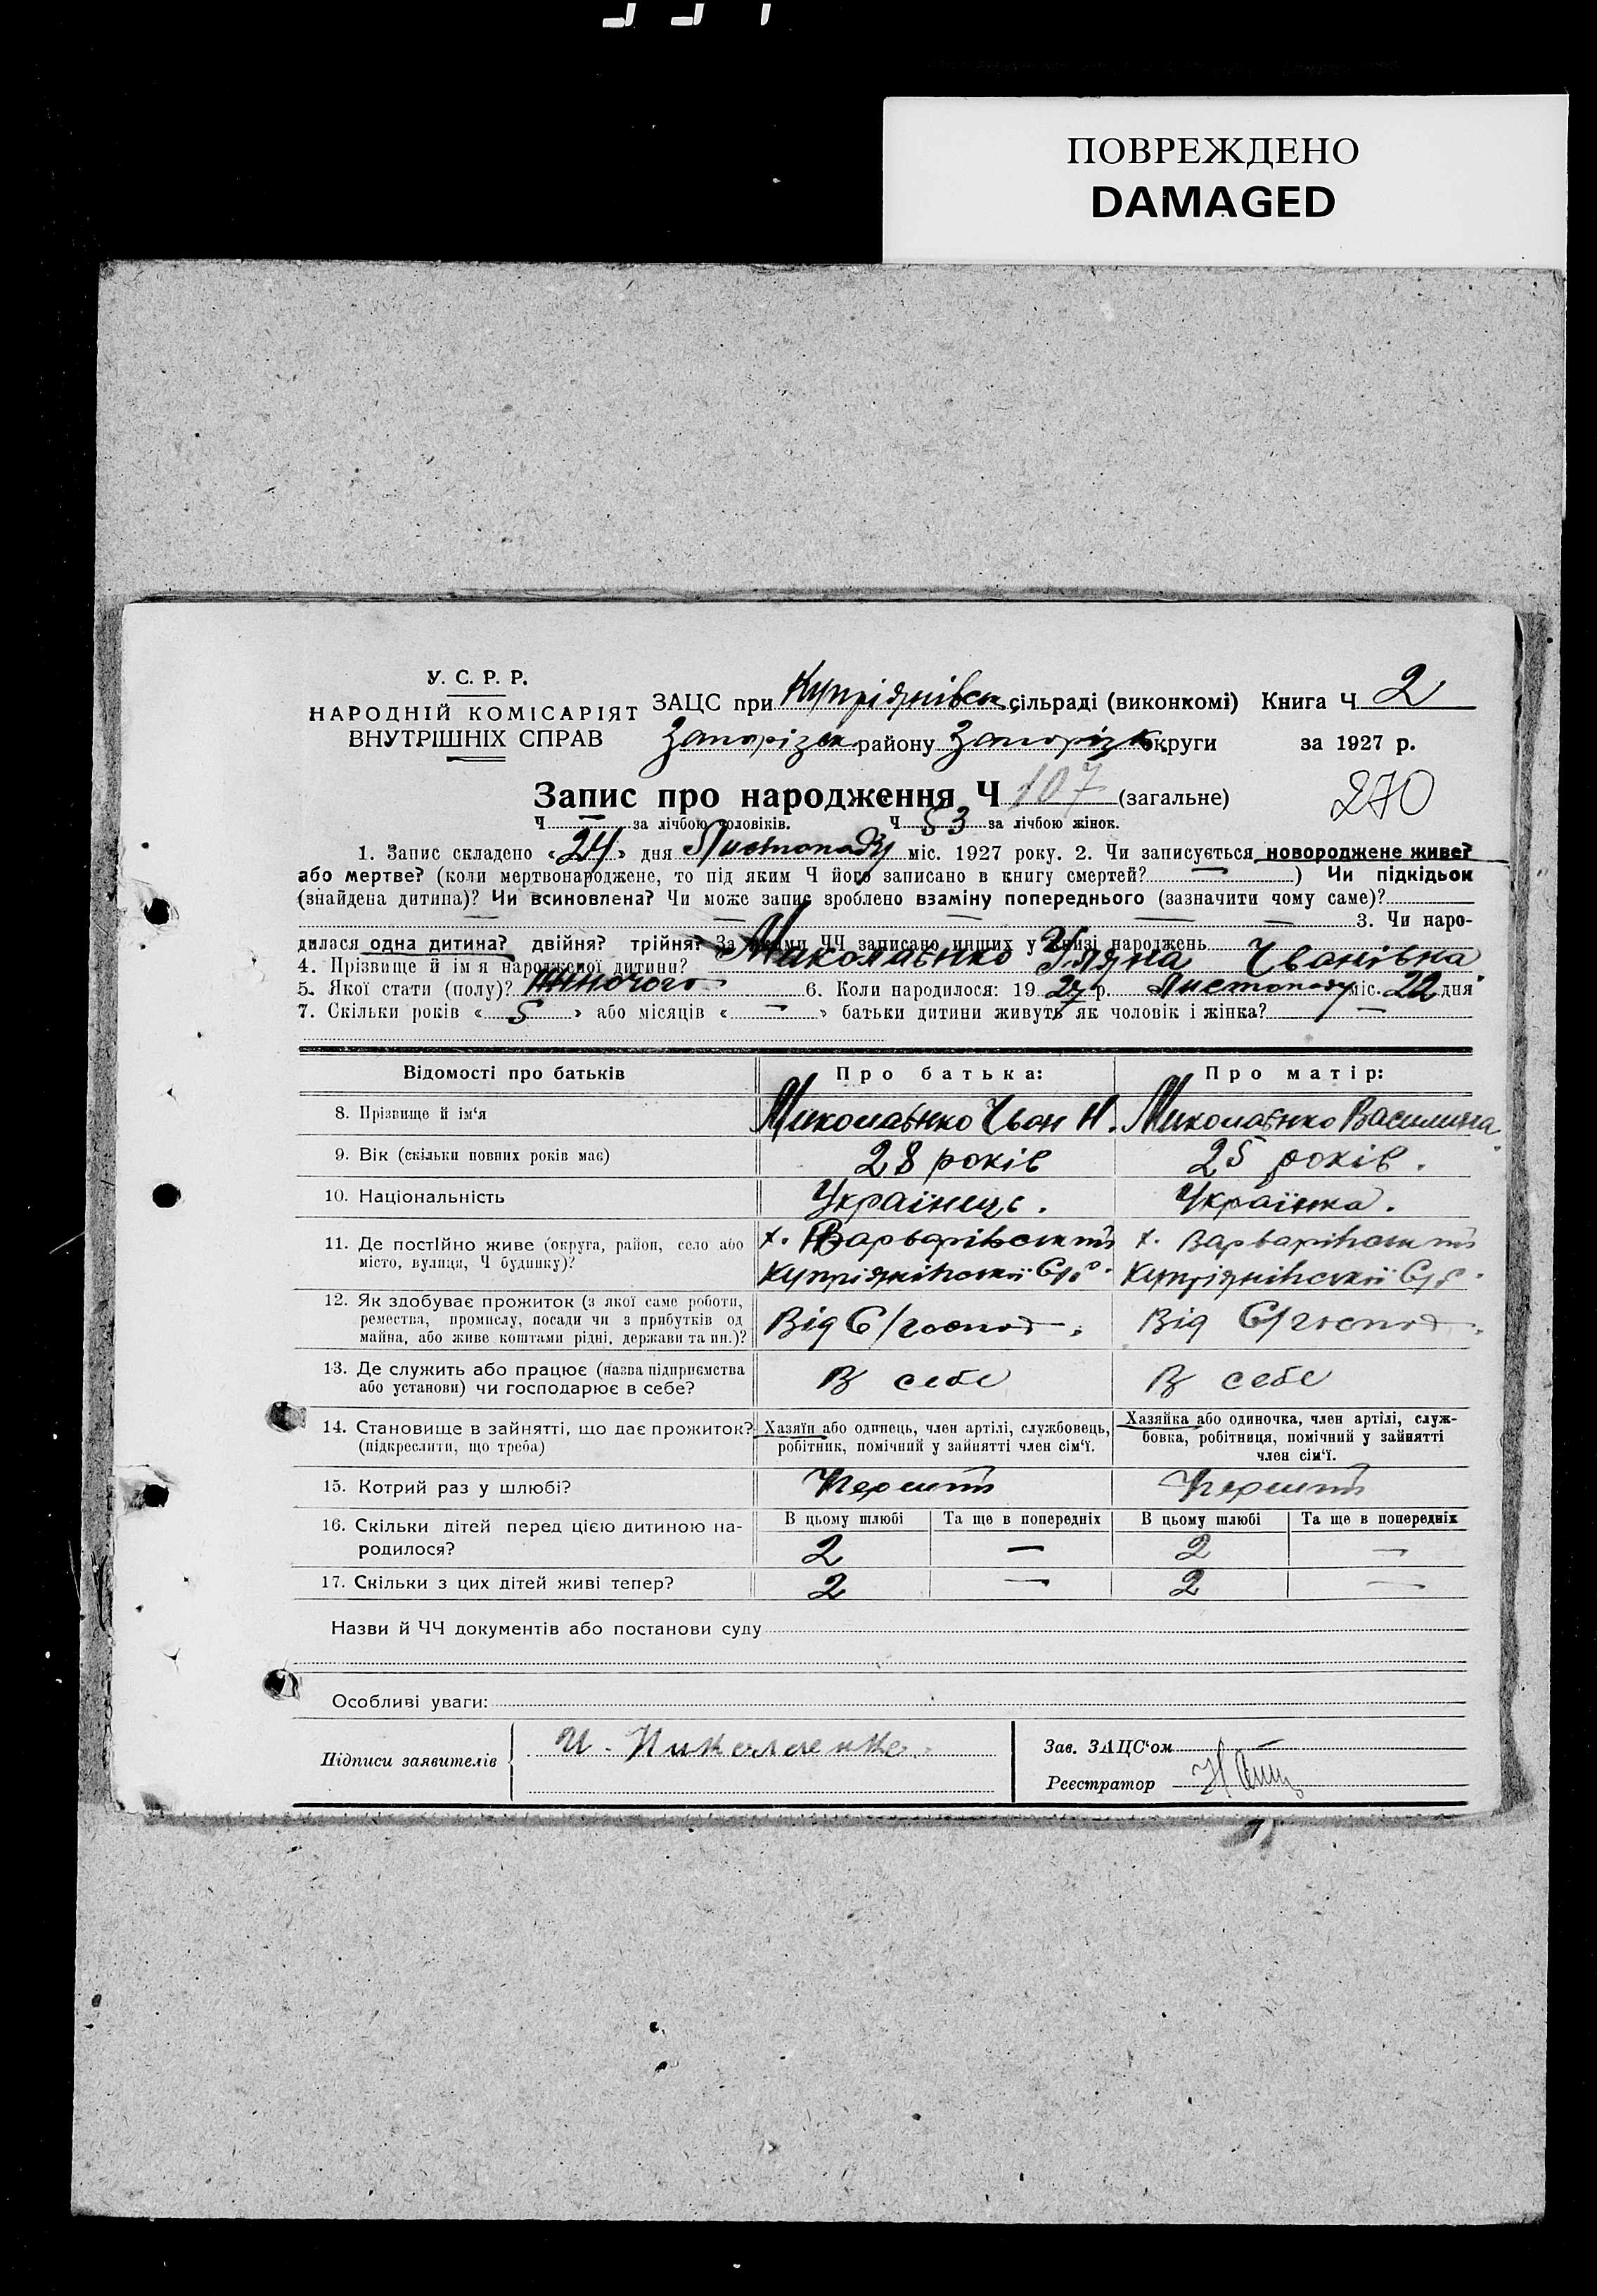 ПОВРЕЖДЕНО
DAMAGED
У. С. Р. Р.
НАРОДНІЙ КОМІСАРІЯТ
ВНУТРІШНІХ СПРАВ
ЗАЦС при Купріянівськ сільраді (виконкомі) Книга Ч 2
Запорізьк району Запорізьк округи за 1927 р.
Запис про народження Ч 107 (загальне) 270
Ч — за лічбою чоловіків. Ч 53 за лічбою жінок.
1. Запис складено «24» дня Листопаду міс. 1927 року. 2. Чи записується новороджене живе?
або мертве? (коли мертвонароджене, то під яким Ч його записано в книгу смертей? — ) Чи підкідьок
(знайдена дитина)? Чи всиновлена? Чи може запис зроблено взаміну попереднього (зазначити чому саме)?
— — — — — 3. Чи наро-
дилася одна дитина? двійня? трійня? За якими ЧЧ записано инших у книзі народжень
4. Прізвище й ім'я народженої дитини? Миколаєнко Уляна Іванівна
5. Якої стати (полу)? Жіночого 6. Коли народилося: 1927 р. Листопаду міс. 22 дня
7. Скільки років « 5 » або місяців « — » батьки дитини живуть як чоловік і жінка? —
Відомості про батьків Про батька: Про матір:
8. Прізвище й ім'я Миколаєнко Іван Н. Миколаєнко Василина
9. Вік (скільки повних років має) 28 років 25 років.
10. Національність Українець. Українка.
11. Де постійно живе (округа, район, село або х. Варварівський х. Варварівський
місто, вулиця, Ч будинку)? Купріянівської С/р. Купріянівської С/р.
12. Як здобуває прожиток (з якої саме роботи,
ремества, промислу, посади чи з прибутків од Від С/госпот. Від С/госпот.
майна, або живе коштами рідні, держави та ин.)?
13. Де служить або працює (назва підприємства В себе В себе
або установи) чи господарює в себе?
14. Становище в зайнятті, що дає прожиток? Хазяїн або одинець, член артілі, службовець, Хазяйка або одиночка, член артілі, служ-
(підкреслити, що треба) робітник, помічний у зайнятті член сім'ї. бовка, робітниця, помічний у зайнятті
член сім'ї.
15. Котрий раз у шлюбі? Перший Перший
16. Скільки дітей перед цією дитиною на- В цьому шлюбі Та ще в попередніх В цьому шлюбі Та ще в попередніх
родилося? 2 — 2 —
17. Скільки з цих дітей живі тепер? 2 — 2 —
Назви й ЧЧ документів або постанови суду
Особливі уваги:
Підписи заявителів И. Николаенко. Зав. ЗАЦС'ом
Реєстратор